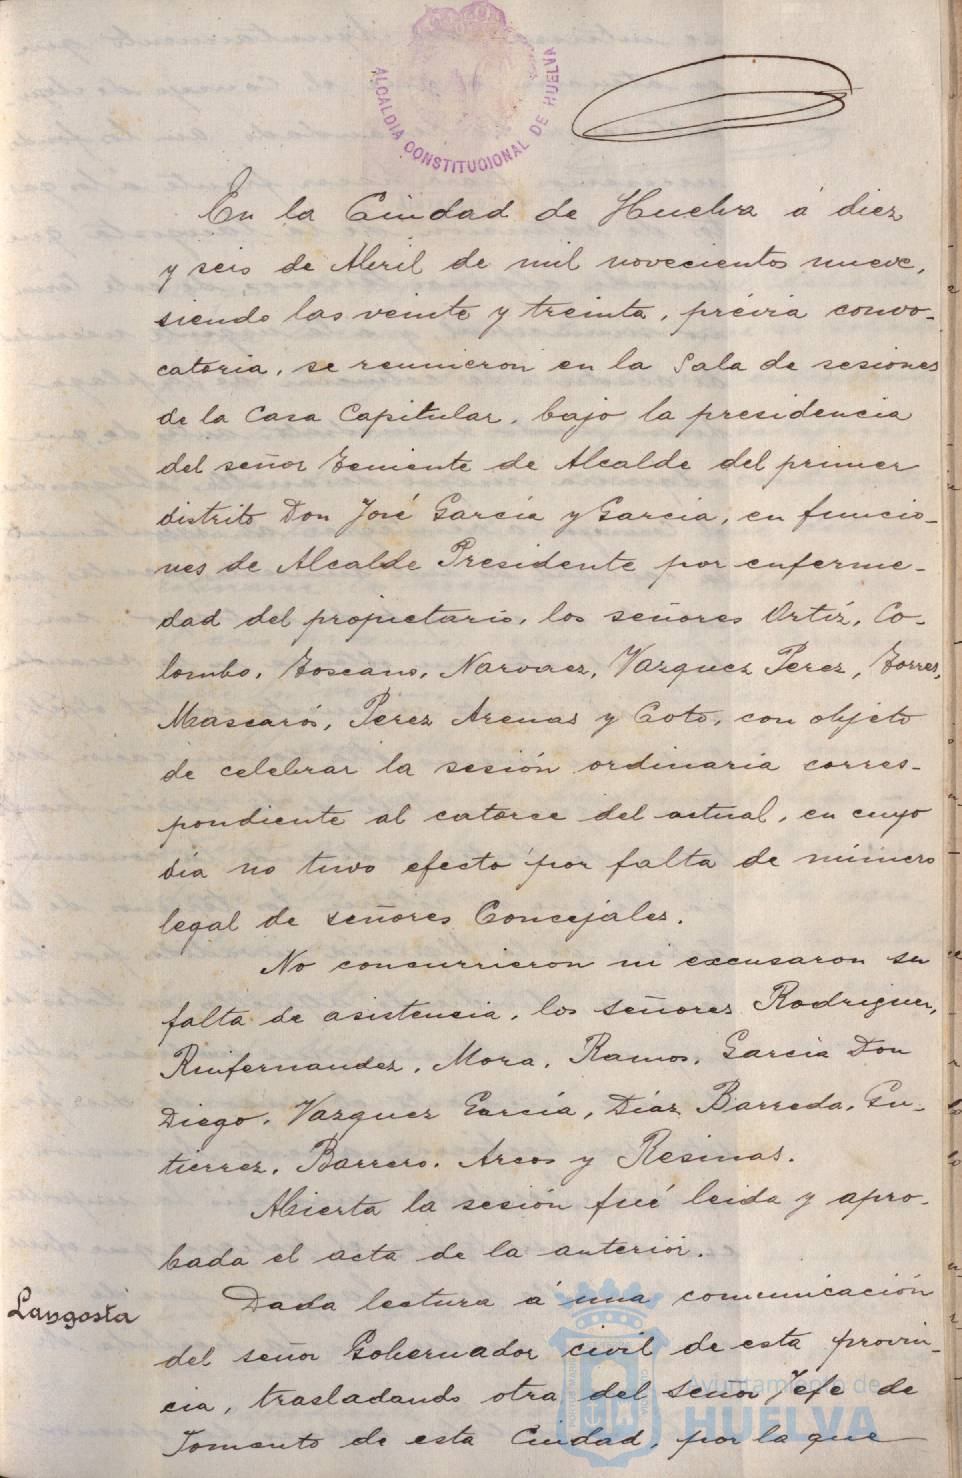 ALCALDIA CONSTITUCIONAL DE HUELVA
En la Ciudad de Huelva á diez
y seis de Abril de mil novecientos nueve,
siendo las veinte y treinta, prévia convo-
catoria, se reunieron en la Sala de sesiones
de la Casa Capitular, bajo la presidencia
del señor Teniente de Alcalde del primer
distrito Don José García y Garcia, en funcio-
nes de Alcalde Presidente por enferme-
dad del propietario, los señores Ortíz, Co-
lombo, Toscano, Narvaez, Vazquez Perez, Torres,
Mascarós, Perez Arenas y Coto, con objeto
de celebrar la sesión ordinaria corres-
pondiente al catorce del actual, en cuyo
día no tuvo efecto por falta de número
legal de señores Concejales.
No concurrieron ni excusaron su
falta de asistencia, los señores Rodriguez,
Ruifernandez, Mora, Ramos, García Don
Diego, Vazquez García, Díaz Barreda, Gu-
tierrez, Barrero, Arcos y Resinas.
Abierta la sesión fué leida y apro-
bada el acta de la anterior.
Langosta
Dada lectura á una comunicación
del señor Gobernador civil de esta provin-
cia, trasladando otra del señor Jefe de
Fomento de esta Ciudad, por la que
Ayuntamiento de
HUELVA